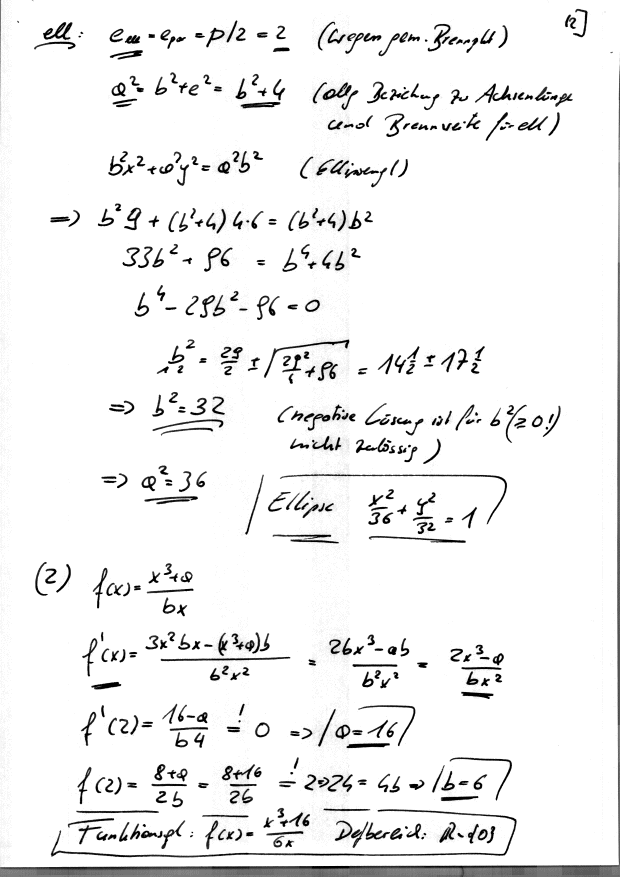 12]
ell: e_ell = e_par = p/2 = 2 (wegen gem. Brennpkt)
a² = b²+e² = b²+4 (allg Beziehung zu Achsenlänge
und Brennweite für ell)
b²x²+a²y² = a²b² (Ellipsengl)
=> b²9 + (b²+4)4·6 = (b²+4)b²
33b² + 96 = b⁴+4b²
b⁴ - 29b² - 96 = 0
b²₁₂ = 29/2 ± √(29²/4 + 96) = 14 1/2 ± 17 1/2
=> b² = 32 (negative Lösung ist für b² (≥0!)
nicht zulässig)
=> a² = 36 Ellipse x²/36 + y²/32 = 1
(2) f(x) = (x³+a)/(bx)
f'(x) = (3x²bx-(x³+a)b)/(b²x²) = (2bx³-ab)/(b²x²) = (2x³-a)/(bx²)
f'(2) = (16-a)/(b4) =! 0 => a = 16
f(2) = (8+a)/(2b) = (8+16)/(2b) =! 2 => 24 = 4b => b = 6
Funktionsgl: f(x) = (x³+16)/(6x) Defbereich: R-{0}